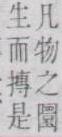 凡物之圜
生而摶是